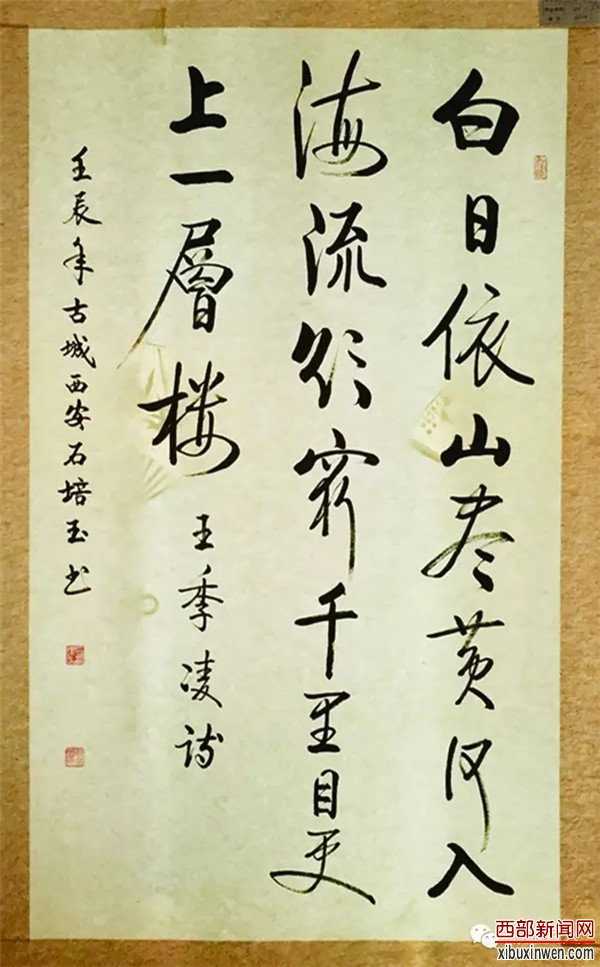 白日依山尽黄河入
海流欲穷千里目更
上一層楼
王季凌诗
壬辰年古城西安石培玉书
西部新闻网
xibuxinwen.com